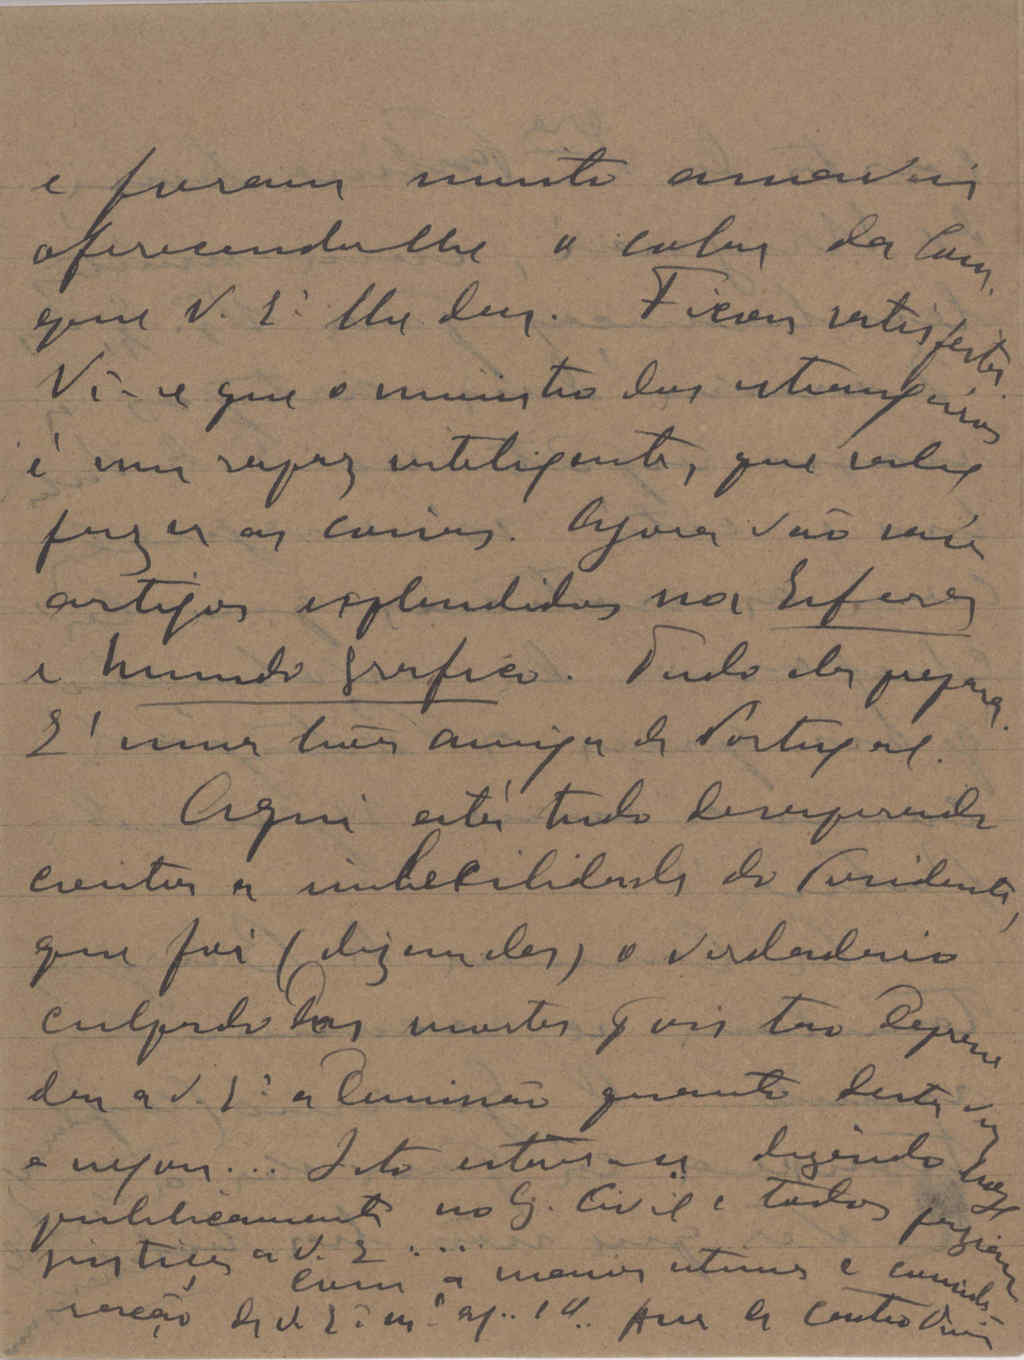 e foram muito amaveis
oferecendo lhe a cabeç da Com,
que V. Ex.ª lhe deu. Ficou satisfeito,
Vê-se que o ministro dos estrangeiros
é um rapaz inteligente, que sabe
fazer as coisas. Agora vão sair
artigos esplendidos na Esfera
e Mundo Grafico. Tudo ela prepara.
E' uma boa amiga de Portugal.
Aqui está tudo desesperado
contra a imbecilidade do Presidente,
que foi (dizem eles) o verdadeiro
culpado das mortes pois tão depressa
deu a V. Ex.ª a Demissão quanto desta vez
a negou... Isto estava-se dizendo hoje
publicamente no G. Civil e todos faziam
justiça a V. E....
Com a maior estima e conside-
ração de V. Ex.ª